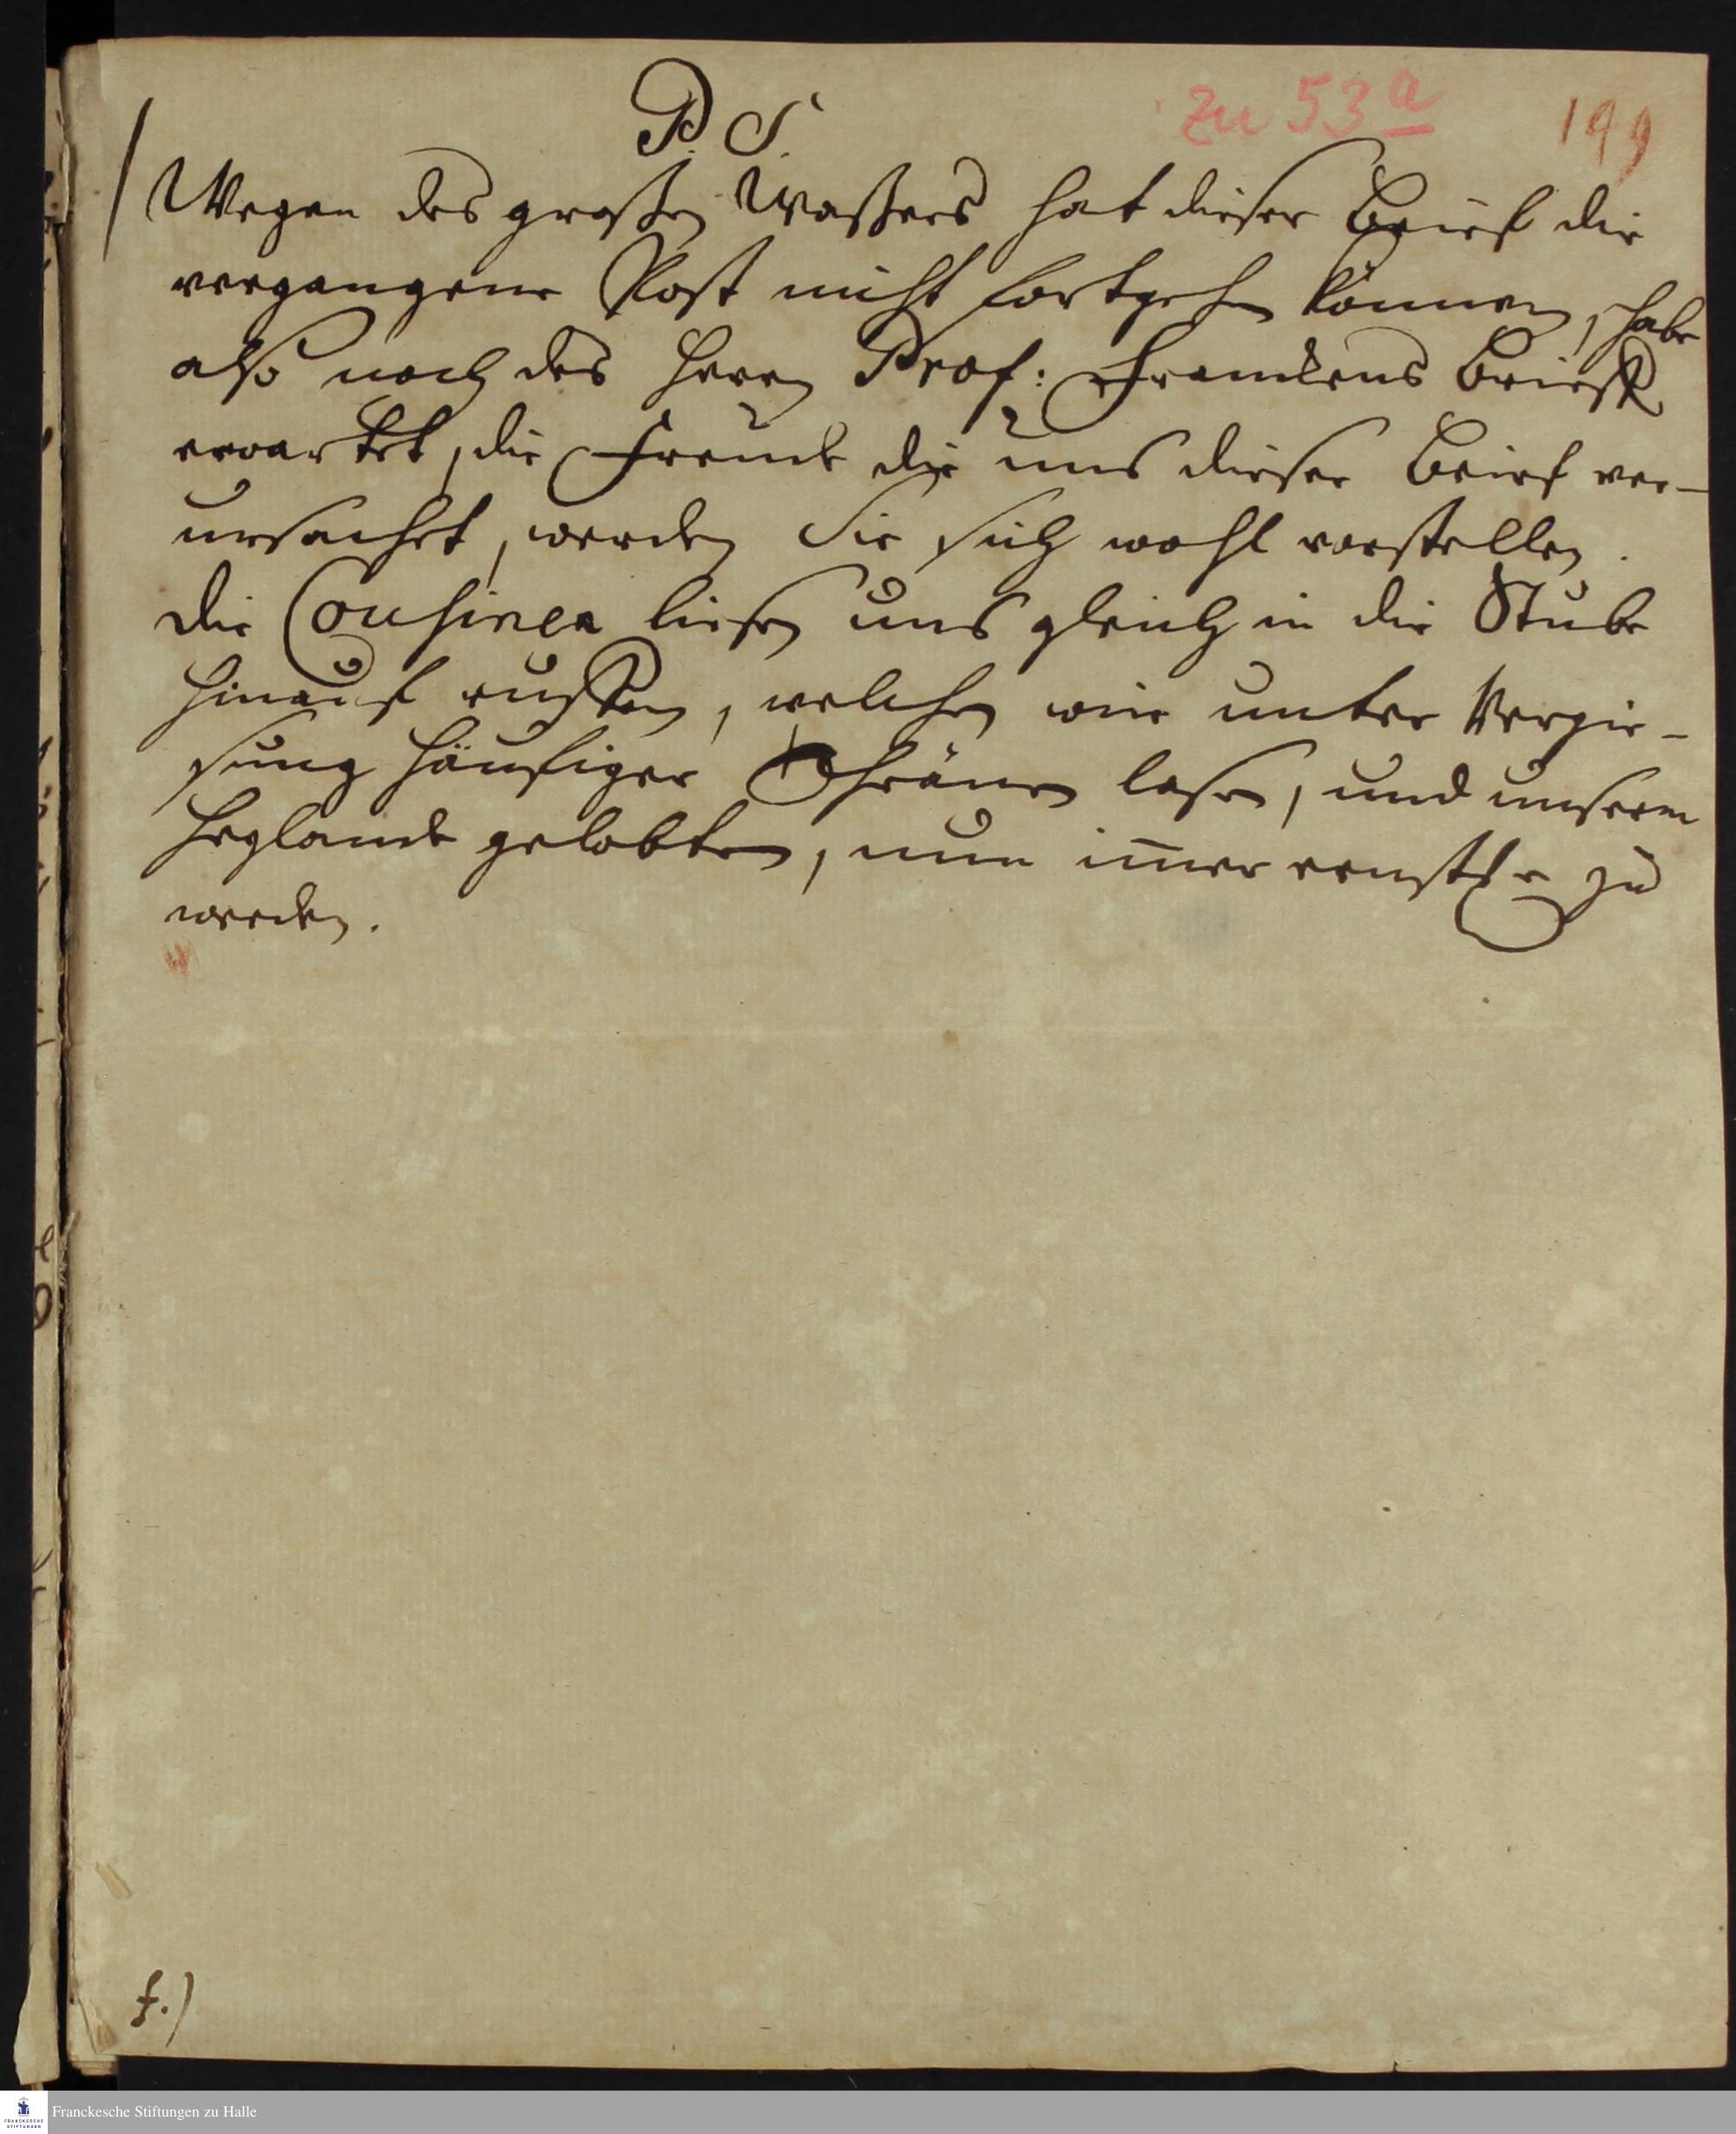 P. S.
zu 53 a
199
Wegen des großen Waßers hat dieser Brief die
vergangene Post nicht fortgehen können, habe
also noch des Herrn Prof: Franckens Brieff
erwartet, die Freude die uns dieser Brief ver-
ursachet, werden Sie sich wohl vorstellen.
die Cousinen liesen uns gleich in die Stube
hinauf ruffen, welchen wir unter Vergie-
sung häufiger Thränen lasen, und unserm
Heylande gelobten, nun im̄er ernstl. zu
werden.
f.)
Franckesche Stiftungen zu Halle